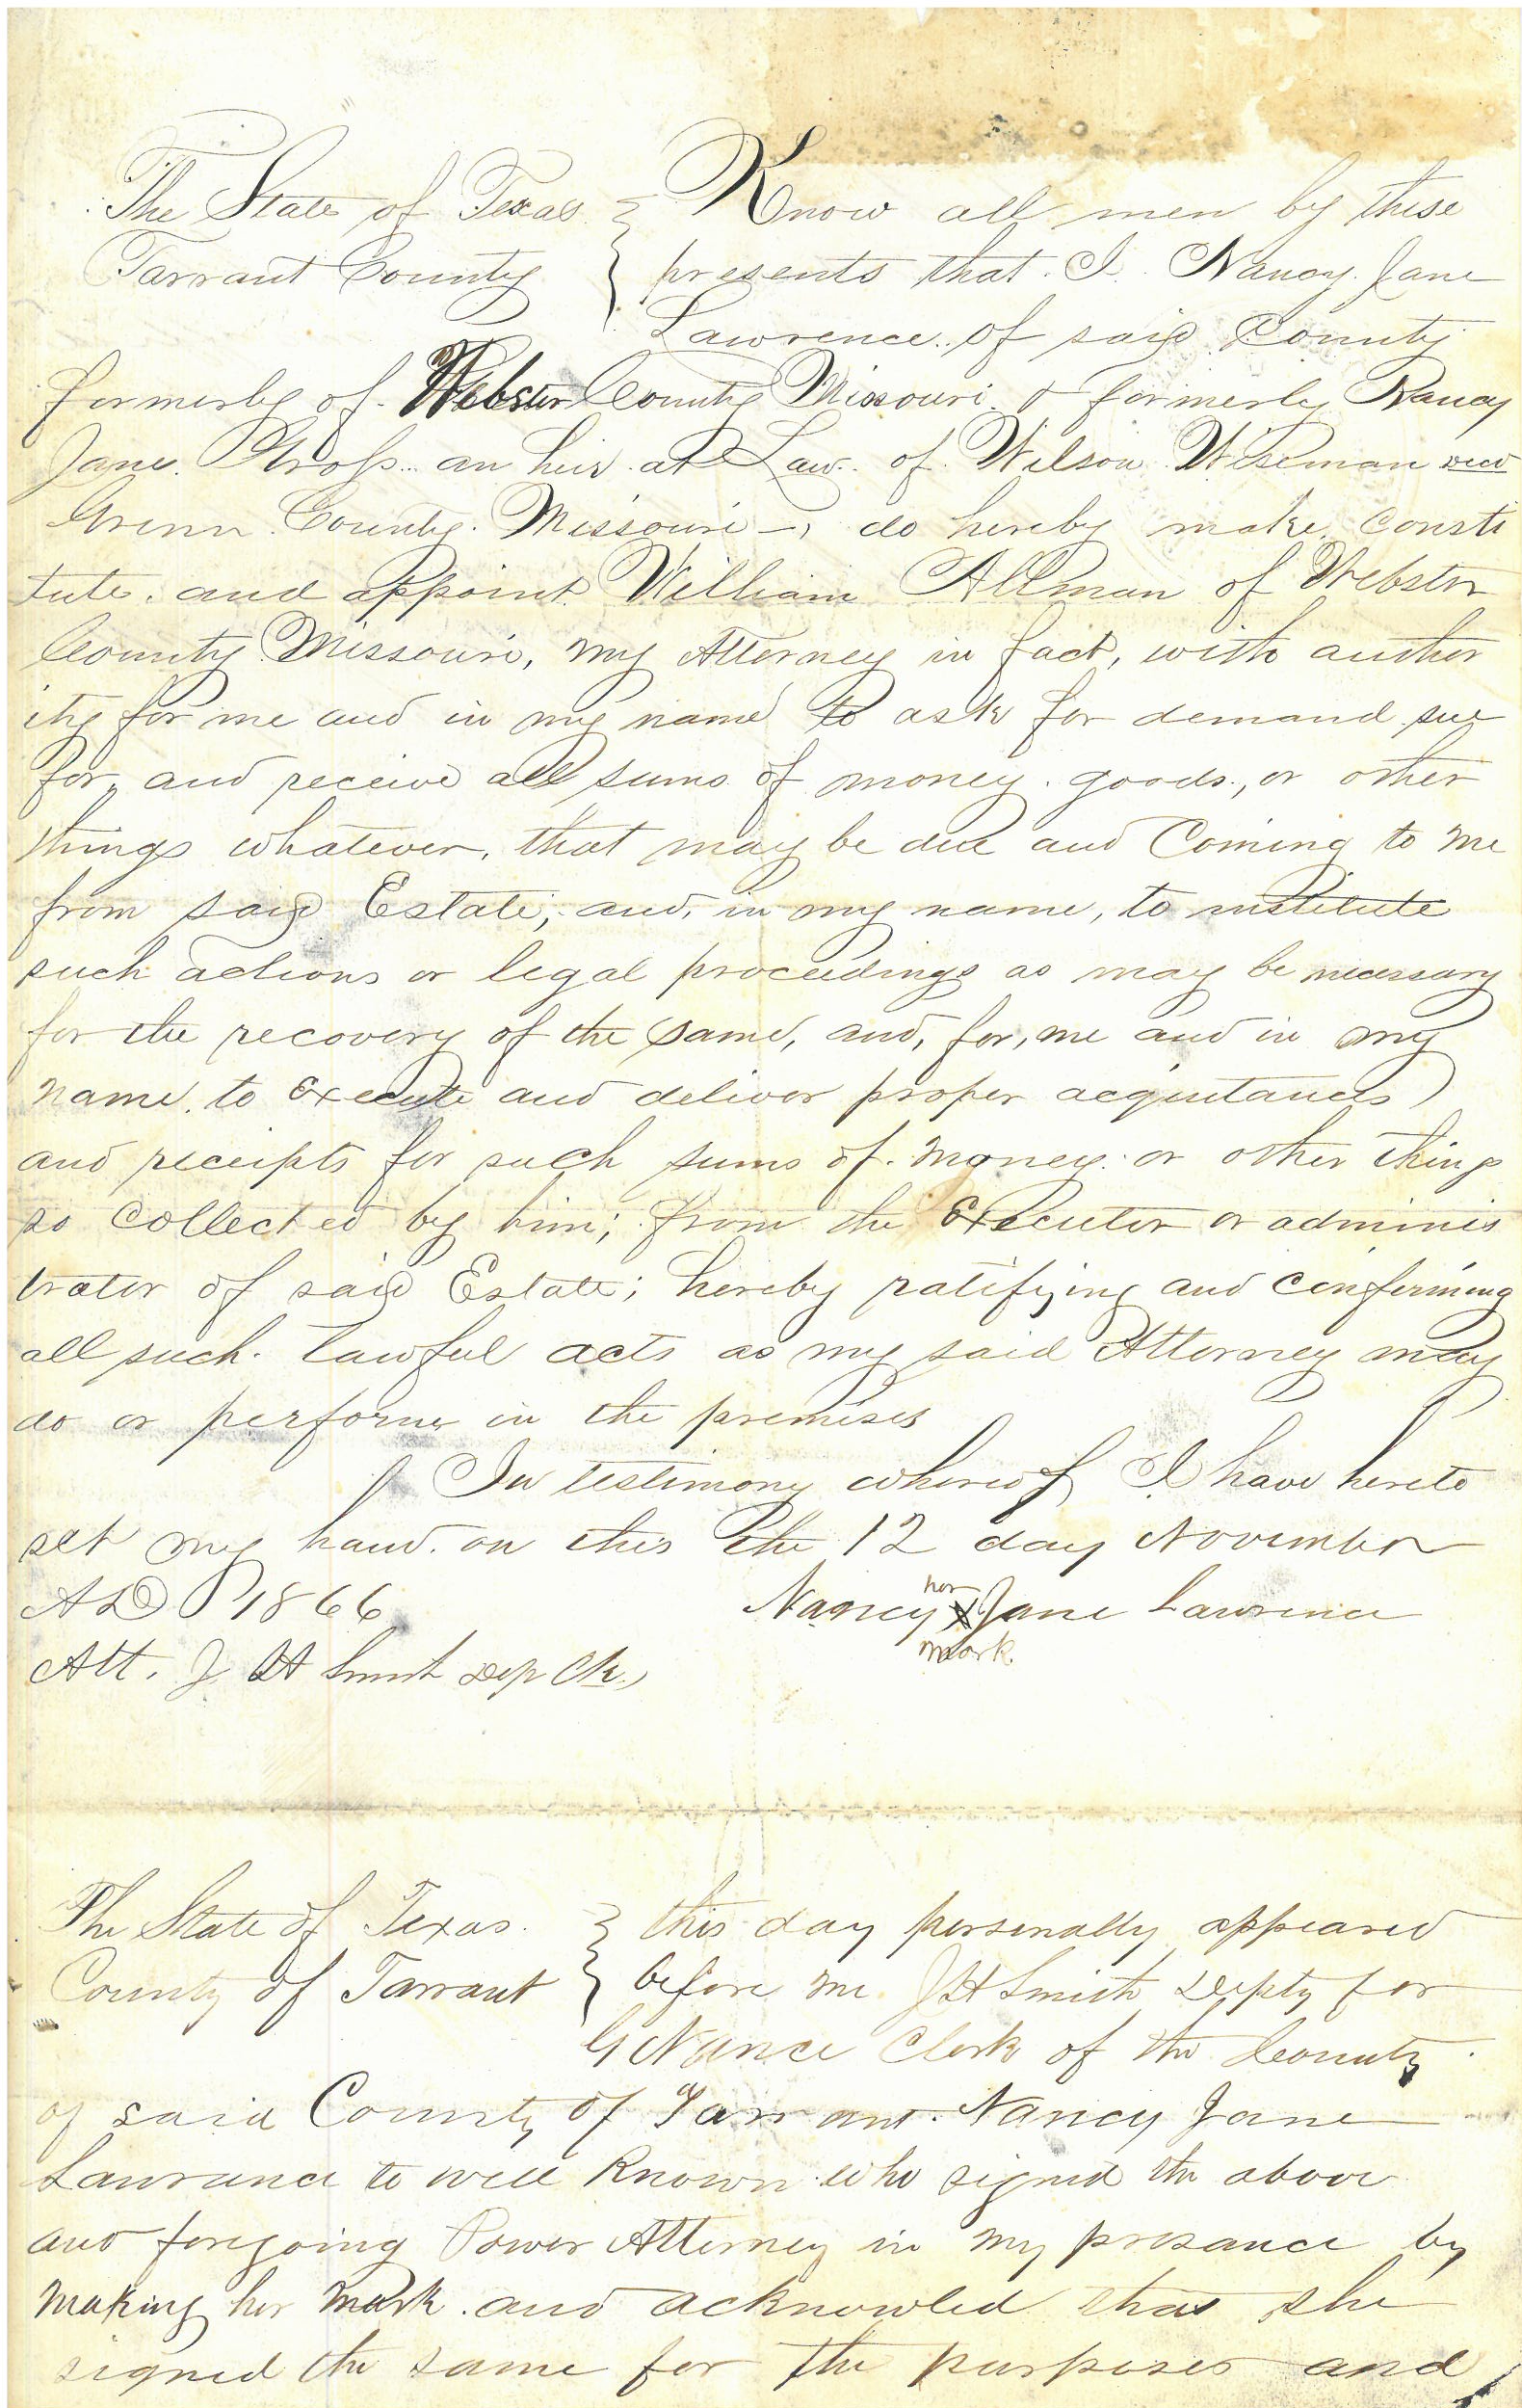 The State of Texas } Know all men by these
Tarrant County } presents that I Nancy Jane
Lawrence of said County
formerly of Webster County Missouri & formerly Nancy
Jane Gross an heir at Law of Wilson Wiseman decd
Green County Missouri -, do hereby make, consti
tute, and appoint William Allman of Webster
County Missouri, my Attorney in fact, with author
ity for me and in my name to ask for demand sue
for, and receive all sums of money, goods, or other
things whatever, that may be due and Coming to me
from said Estate; and, in my name, to institute
such actions or legal proceedings as may be necessary
for the recovery of the same, and, for, me and in my
name, to Execute and deliver proper acquitances
and receipts for such sums of money or other things
so collected by him; from the Executor or adminis
trator of said Estate; hereby ratifying and confirming
all such lawful acts as my said Attorney may
do or perform in the premises
In testimony whereof I have hereto
set my hand on this the 12 day November
AD 1866
her
Nancy X Jane Lawrence
mark
Att. J H Smith Dep Clk.
The State of Texas } this day personally appeared
County of Tarrant } before me J H Smith Depty for
G Nance Clerk of the County
of said County of Tarrant Nancy Jane
Lawrance to well Known who signed the above
and foregoing Power Attorney in my presance by
making her mark and acknowled that she
signed the same for the purposes and